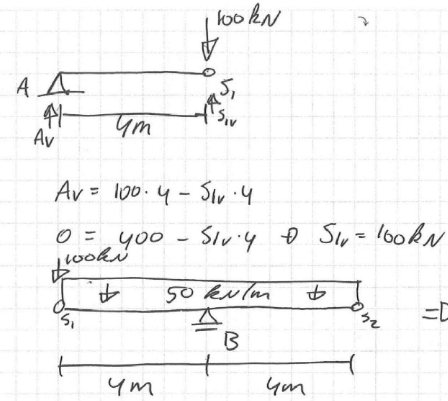 100kN
A
S1
Av
4m
S1v
Av = 100·4 - S1v·4
0 = 400 - S1v·4 → S1v = 100kN
100kN
50 kN/m
S1
S2
B
4m 4m